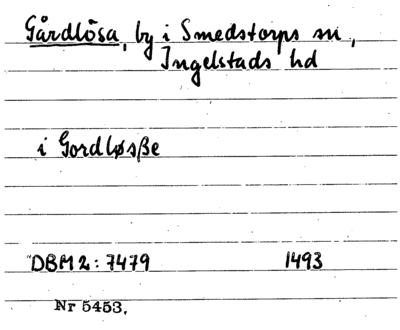 Gårdlösa, by i Smedstorps sn,
Ingelstads hd
i Gordløsße
DBM 2: 7479 1493
Nr 5453.